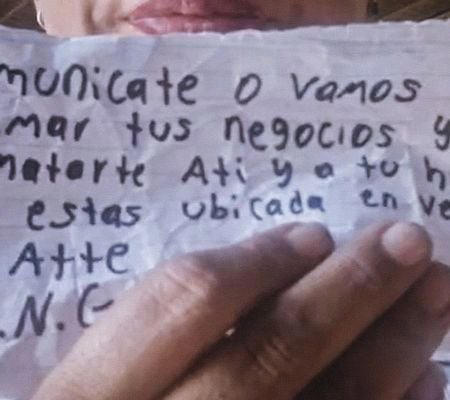 municate o vamos
mar tus negocios y
matarte Ati y a tu h
estas ubicada en ve
Atte
.N.G